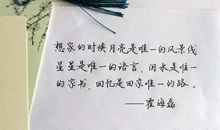 想家的时候月亮是唯一的风景线
星星是唯一的语言，闪水是唯一
的家书，回忆是回家唯一的路。
——霍海磊